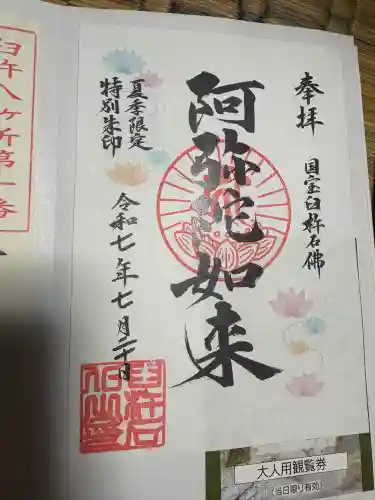 奉拝
国宝臼杵石佛
阿弥陀如来
夏季限定
特別朱印
令和七年七月二十日
臼杵八ヶ所第一番
大人用観覧券
（当日限り有効）